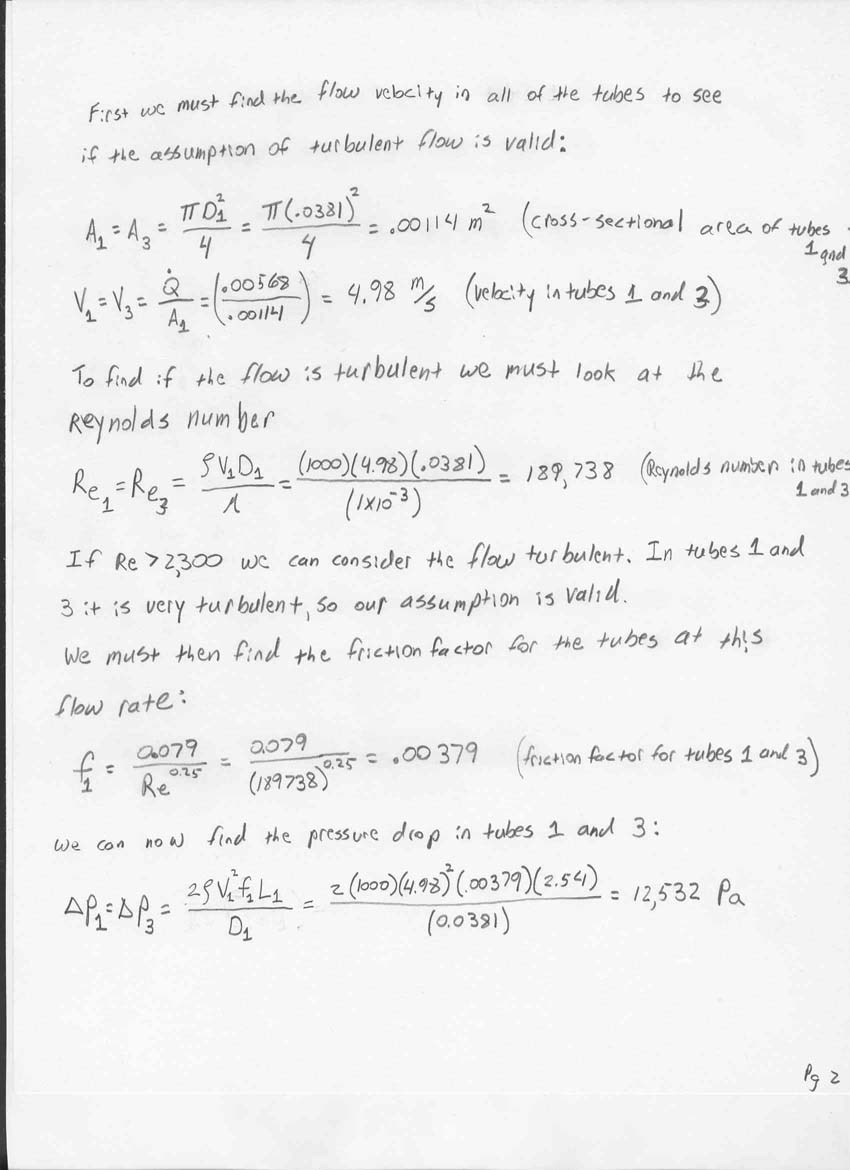 First we must find the flow velocity in all of the tubes to see
if the assumption of turbulent flow is valid:
A₁ = A₃ = πD₁²/4 = π(.0381)²/4 = .00114 m² (cross-sectional area of tubes 1 and 3
V₁ = V₃ = Q̇/A₁ = (.00568/.00114) = 4.98 m/s (velocity in tubes 1 and 3)
To find if the flow is turbulent we must look at the
Reynolds number
Re₁ = Re₃ = ρV₁D₁/μ = (1000)(4.98)(.0381)/(1x10⁻³) = 189,738 (Reynolds number in tubes 1 and 3
If Re > 2,300 we can consider the flow turbulent. In tubes 1 and
3 it is very turbulent, so our assumption is valid.
We must then find the friction factor for the tubes at this
flow rate:
f₁ = 0.079/Re^0.25 = 0.079/(189738)^0.25 = .00379 (friction factor for tubes 1 and 3)
We can now find the pressure drop in tubes 1 and 3:
ΔP₁ = ΔP₃ = 2ρV₁²f₁L₁/D₁ = 2(1000)(4.98)²(.00379)(2.541)/(0.0381) = 12,532 Pa
Pg 2